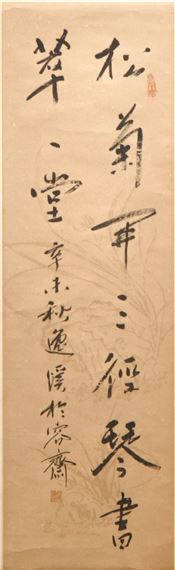 松菊開三徑琴書
萃一堂辛未秋逸溪於容齋